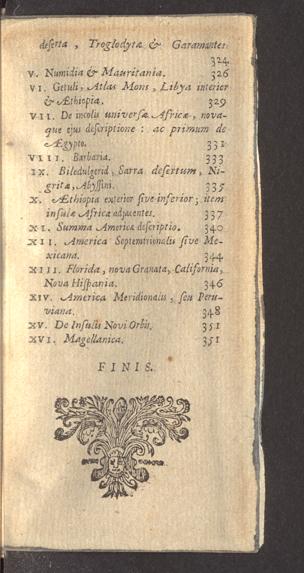 deserta, Troglodytæ & Garamantes.
324
V. Numidia & Mauritania. 326
VI. Getuli, Atlas Mons, Libya interior
& Æthiopia. 329
VII. De incolis universæ Africæ, nova-
que ejus descriptione: ac primum de
Ægypto. 331
VIII. Barbaria. 333
IX. Biledulgerid, Sarra desertum, Ni-
gritæ, Abyssini. 335
X. Æthiopia exterior sive inferior; item
insulæ Africæ adjacentes. 337
XI. Summa Americæ descriptio. 340
XII. America Septemtrionalis sive Me-
xicana. 344
XIII. Florida, nova Granata, California,
Nova Hispania. 346
XIV. America Meridionalis, seu Peru-
viana. 348
XV. De Insulis Novi Orbis. 351
XVI. Magellanica. 351
FINIS.